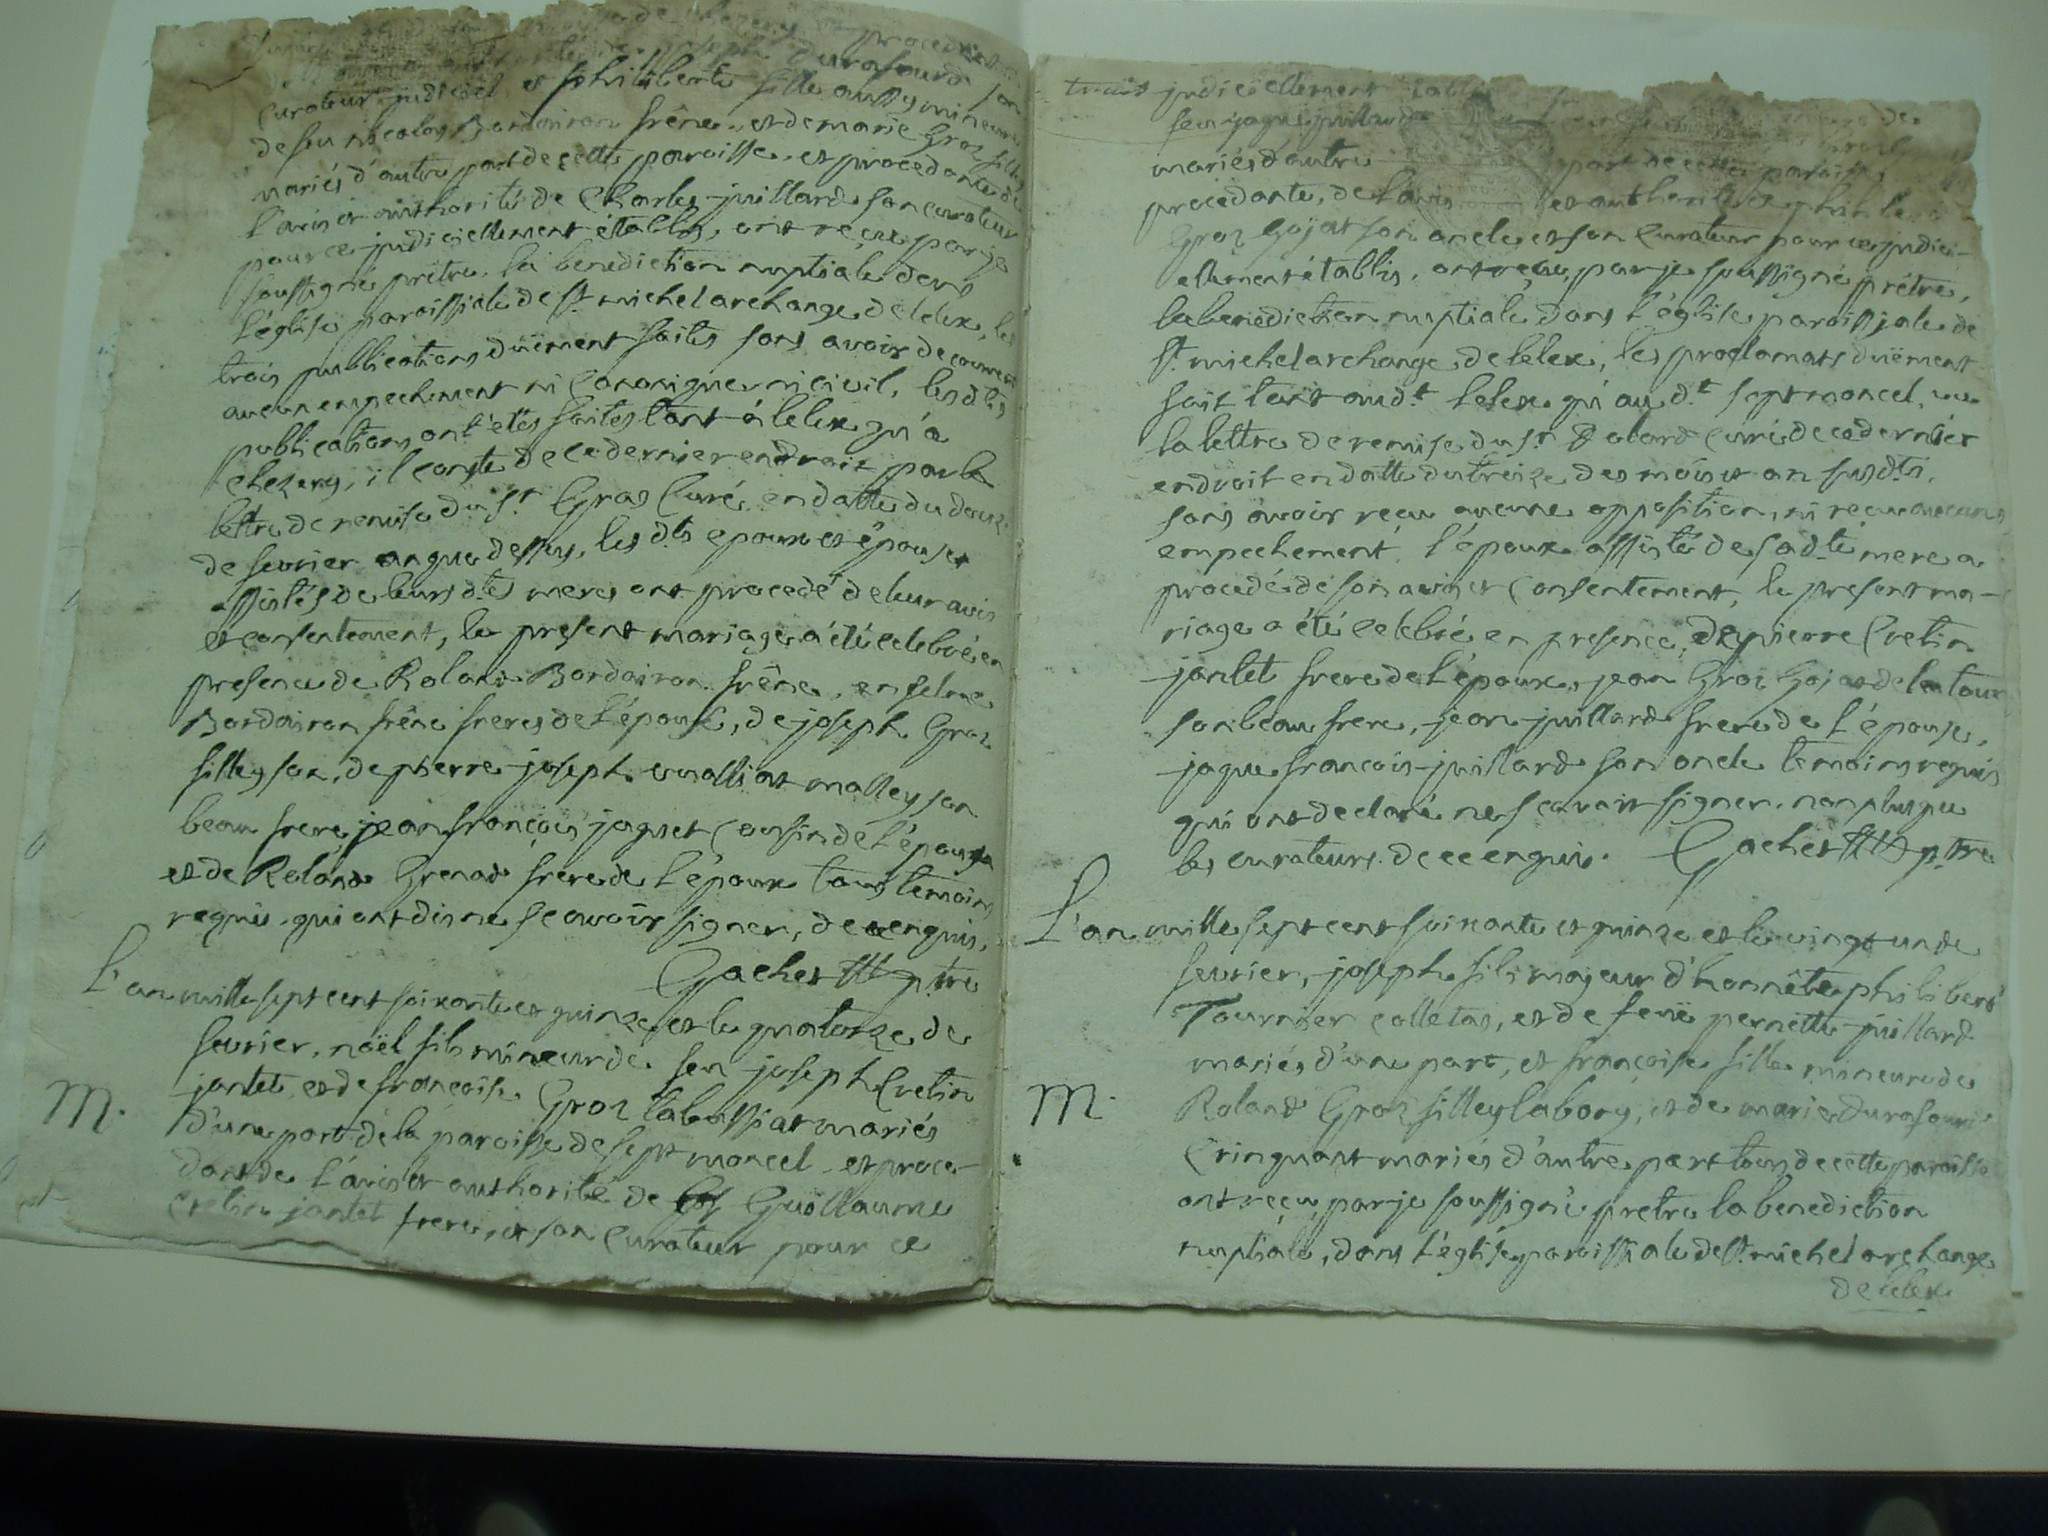 de chezery et procedant
joseph Durafourd son
Curateur judiciel et philiberte fille aussy mineure
de feu nicolas Bordairon frêne, et de marie Groz filley
mariés d'autre part de cette paroisse, et procedante de
l'avis et authorité de Charles juillard son curateur
pour ce judiciellement établis, ont reçu par je
soussigné prêtre, la benediction nuptiale dans
l'église paroissiale de St michel archange de lelex, les
trois publications duëment faites sans avoir decouvert
aucun empechement ni canonique ni civil, les dtes
publications ont étés faites tant à lelex qu'à
chezery, il conste de ce dernier endroit par la
lettre de remise du Sr Gras Curé en datte du douze
de fevrier an que dessus, les dts epoux et épouse
assistés de leurs dtes meres ont procedé de leur avis
et consentement, le present mariage a été celebré en
presence de Roland Bordairon frêne, enselme
Bordairon frêne freres de l'épouse, de joseph Groz
filley son, de pierre joseph coualliat malley son
beau frere, jean françois jaquet cousin de l'épouse
et de Roland Grenad frere de l'époux tous temoins
requis, qui ont dis ne scavoir signer, de ce enquis.
Gachet ptre
L'an mille sept cent soixante et quinze et le quatorze de
fevrier, noël fils mineur de feu joseph Cretin
jantet et de françoise Groz labassiat mariés
M.
d'une part de la paroisse de sept moncel et proce-
dant de l'avis et authorité de Guillaume
Cretin jantet frere, et son Curateur pour ce
judiciellement établi
feu jaque juillard
mariés d'autre part de cette paroisse,
procedante, de l'avis et authorité de
Groz Gojat son oncle et son Curateur pour ce judici-
ellement établis, ont reçu, par je soussigné prêtre,
la benediction nuptiale dans l'église paroissiale de
St michel archange de lelex, les proclamats duëment
fait tant aud.t lelex qu'au d.t sept moncel, vu
la lettre de remise du Sr Curé de ce dernier
endroit en datte du treize des mois et an susd.ts,
sans avoir reçu aucune opposition, ni reçu aucuns
empechement, l'époux assisté de sad.te mere a
procedé de son avis et Consentement, le present ma-
riage a été celebré en presence, de pierre Cretin
jantet frere de l'époux, jean Groz Gojat de la tour
son beau frere, jean juillard frere de l'épouse,
jaque françois juillard son oncle temoins requis
qui ont declaré ne scavoir signer, non plus que
les curateurs de ce enquis. Gachet ptre
L'an mille sept cent soixante et quinze et le vingt un de
fevrier, joseph fils majeur d'honnête philibert
Tournier colletas, et de feuë pernette juillard
mariés d'une part, et françoise fille mineure de
M.
Roland Groz filley labory, et de marie Durafourd
Cringuant mariés d'autre part tous de cette paroisse
ont reçu, par je soussigné prêtre la benediction
nuptiale, dans l'église paroissiale de St michel archange
de lelex